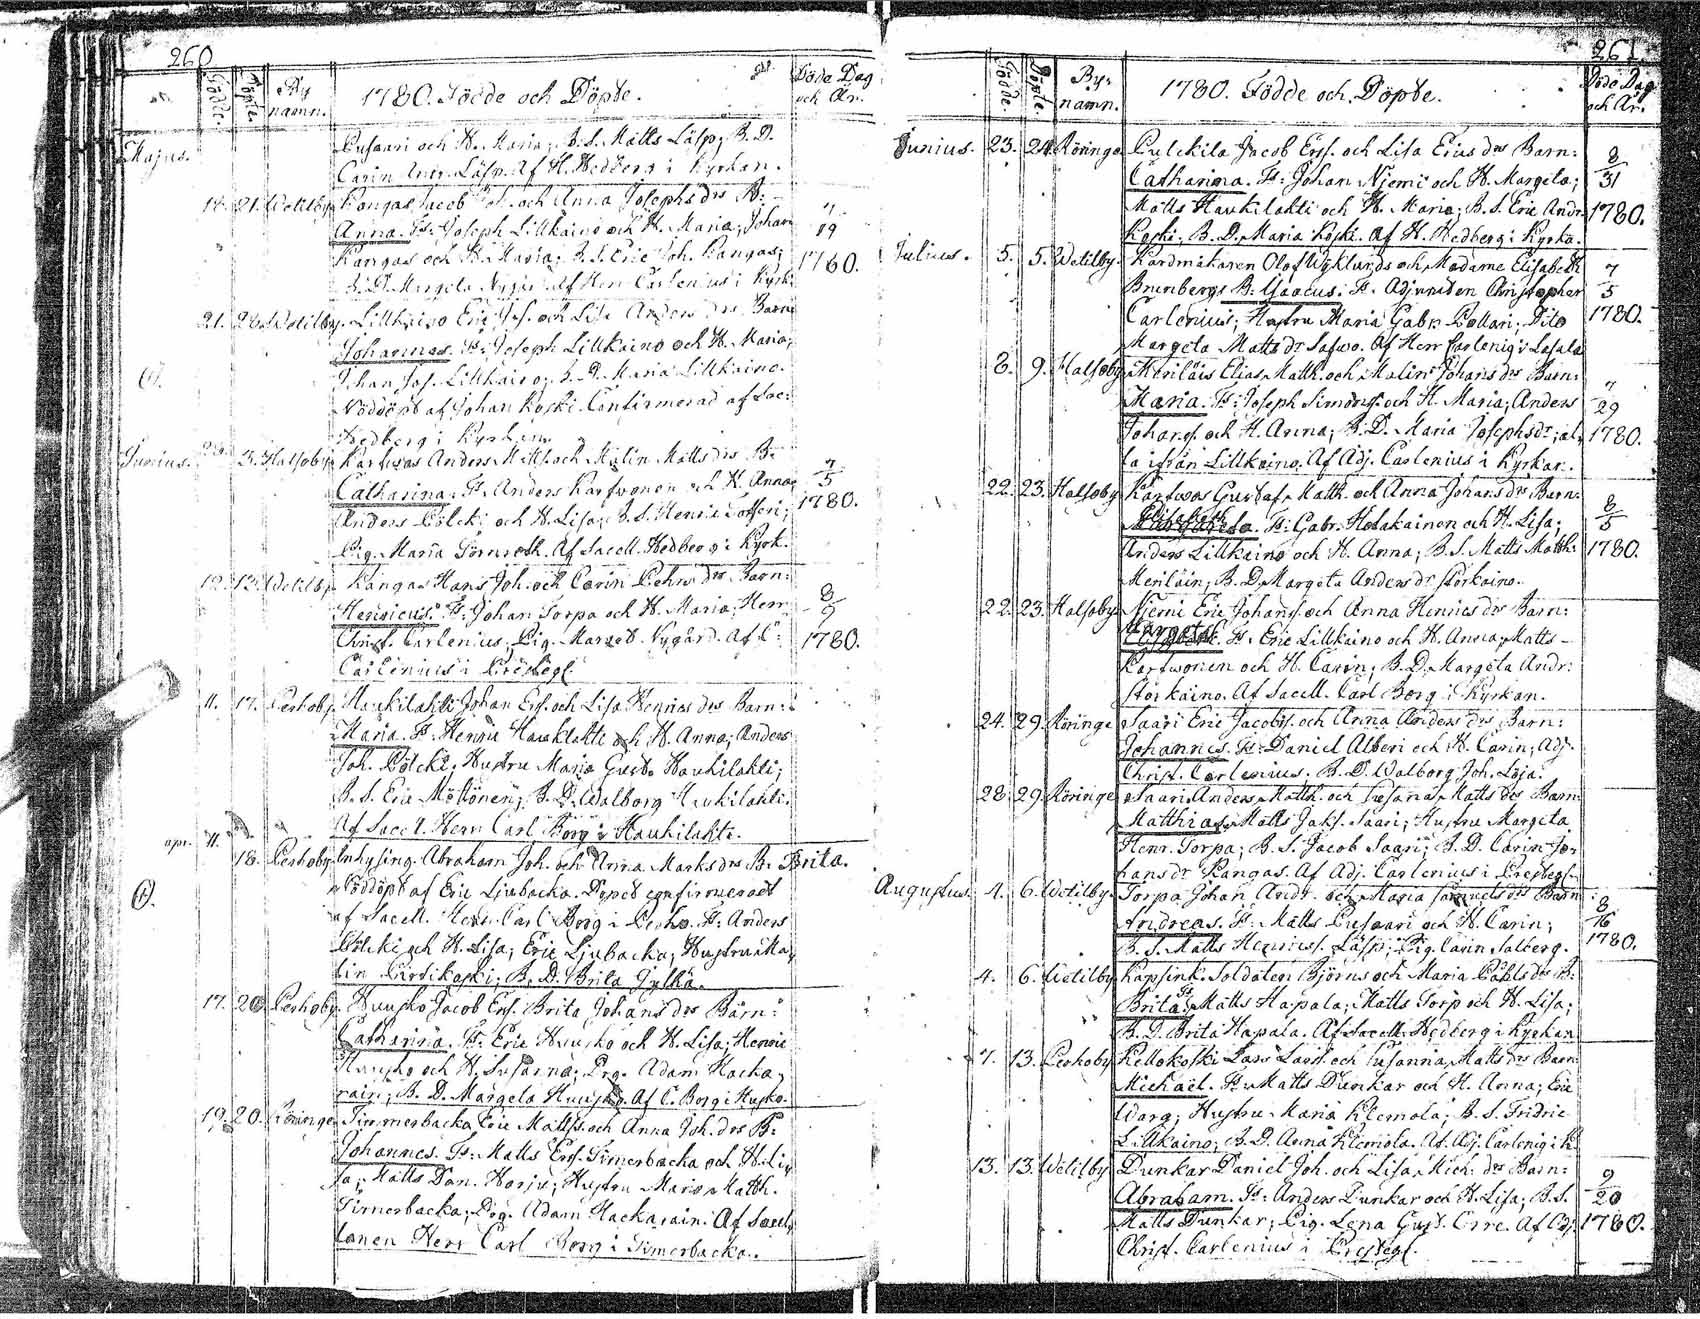 260
Födde. Döpte. By namn. 1780. Födde och Döpte. Döde Dag och År.
Majus. Pusaari och H. Maria; B. S. Matts Läsp; B. D.
Carin Andr. Läsp. Af H. Hedberg i Kyrkan.
21. Wetilby Kangas Jacob Joh. och Anna Josephs dr B:
Anna. Ft: Joseph Lillkaino och H. Maria; Johan
Kangas och H. Maria; B. S. Eric Joh. Kangas;
B. D. Margeta Af Herr Carlenius i Kyrk.
1780.
21. Wetilby. Lillkaino Eric Jos. och Lisa Anders drs Barn
Johannes. Ft: Joseph Lillkaino och H. Maria;
Johan Jos. Lillkaino; B. D. Maria Lillkaino.
Nöddöpt af Johan Koski. Confirmerad af Sac:
Hedberg i Kyrkan
Junius. 3. Halsoby. Karfwos Anders Matts. och Malin Matts drs B:
Catharina. Ft. Anders Karfwonen och H. Anna;
Anders Pölcki och H. Lisa; B. S. Henric
Pig. Maria Af Sacell. Hedberg i Kyrk.
7/5
1780.
12. 13. Wetilby Kangas Hans Joh. och Carin Pehrs drs Barn:
Henricus. Ft: Johan Torpa och H. Maria; Herr
Christ. Carlenius; Pig. Marget. Nygård. Af C:
Carlenius i Prestegl.
1780.
11. 17. Perhoby Haukilahti Johan Ers. och Lisa Henrics drs Barn:
Maria. Ft: Henric Haukilahti och H. Anna; Anders
Joh. Pölcki; Hustru Maria Gust. Haukilahti;
B. S. Eric Möttönen; B. D. Walborg Haukilahti.
Af Sacell. Herr Carl Borg i Haukilahti.
apr. 11.
18. Perhoby Inhysing. Abraham Joh. och Anna Marks drs B: Brita.
Nöddöpt af Eric Ljubacka. Döpet confirmeradt
af Sacell. Herr Carl Borg i Perho. Ft: Anders
Pölcki och H. Lisa; Eric Ljubacka; Hustru Ma-
lin B. D. Brita Jylkä.
17. 20. Perhoby. Huusko Jacob Ers. Brita Johans drs Barn:
Catharina. Ft: Eric Huusko och H. Lisa; Henric
Huusko och H. Susanna; Drg. Adam Hacka-
rain; B. D. Margeta Huusko. Af C. Borg i Husko.
19. 20. Röringe Timmerbacka Eric Matts. och Anna Joh. drs B:
Johannes. Ft: Matts Ers. Timerbacka och H. Li-
sa; Matts Dan. Horju; Hustru Maria Matth.
Timerbacka; Drg. Adam Hackarain. Af Sacel-
lanen Herr Carl Borg i Timerbacka.
261.
Födde. Döpte. By: namn. 1780. Födde och Döpte. Döde Dag och År.
Junius. 23. 24. Röringe Pulckila Jacob Ers. och Lisa Erics drs Barn:
Catharina. Ft: Johan Njemi och H. Margeta;
Matts Haukilahti och H. Maria; B. S. Eric Andr.
Koski; B. D. Maria Koski. Af H. Hedberg i Kyrka.
8/31
1780.
Julius. 5. 5. Wetilby. Kardmakaren Olof Wiklunds och Madame Elisabeth
Brunbergs B: Isaacus. Ft. Adjuncten Christopher
Carlenius; Hustru Maria Gabr. Dito
Margeta Matts dr Safwo. Af Herr Carlenig i Lasala
7/5
1780.
8. 9. Halsoby Meriläis Elias Matth. och Malin Johans drs Barn:
Maria. Ft: Joseph Simons. och H. Maria; Anders
Johans. och H. Anna; B. D. Maria Josephs dr; al-
la ifrån Lillkaino. Af Adj. Carlenius i Kyrkan.
29
1780.
22. 23. Halsoby Karfwos Gustaf Matth. och Anna Johans drs Barn:
Elisabeth. Ft: Gabr. Holakainen och H. Lisa;
Anders Lillkaino och H. Anna; B. S. Matts Matth:
Meriläin; B. D. Margeta Anders dr Storkaino.
8/5
1780.
22. 23. Halsoby Njemi Eric Johans. och Anna Henrics drs Barn:
Margeta. Ft: Eric Lillkaino och H. Anna; Matts
Karfwonen och H. Carin; B. D. Margeta Andr:
Storkaino. Af Sacell. Carl Borg i Kyrkan.
24. 29. Röringe Saari Eric Jacobs. och Anna Anders drs Barn:
Johannes. Ft: Daniel Alberi och H. Carin; Adj.
Christ. Carlenius. B. D. Walborg Joh. Löja.
28. 29. Röringe Saari Anders Matth. och Susanna Matts drs Barn:
Matthias. Matts Jaks. Saari; Hustru Margeta
Henr. Torpa; B. S. Jacob Saari; B. D. Carin Jo-
hans dr Kangas. Af Adj. Carlenius i Prestegl.
Augustus. 4. 6. Wetilby. Torpa Johan Andr. och Maria Samuels drs Barn
Andreas. Ft: Matts Pusaari och H. Carin;
B. S. Matts Henrics. Läsp; Pig. Carin Salberg.
8/16
1780.
4. 6. Wetilby Kapsink. Soldaten Björns och Maria Påhls drs B:
Brita. Ft: Matts Hapala; Matts Torp och H. Lisa;
B. D. Brita Hapala. Af Sacell. Hedberg i Kyrkan
7. 13. Perhoby Kellokoski Lars Larss. och Susanna Matts drs Barn
Michael. Ft: Matts Dunkar och H. Anna; Eric
Warg; Hustru Maria Klemola; B. S. Fridric
Lillkaino; B. D. Anna Klemola. Af Adj. Carlenig i K
13. 13. Wetilby Dunkar Daniel Joh. och Lisa Mich: drs Barn:
Abraham. Ft: Anders Dunkar och H. Lisa; B. S.
Matts Dunkar; Pig. Lena Gust. Orre. Af Adj.
Christ. Carlenius i Prestegl.
9/20
1780.